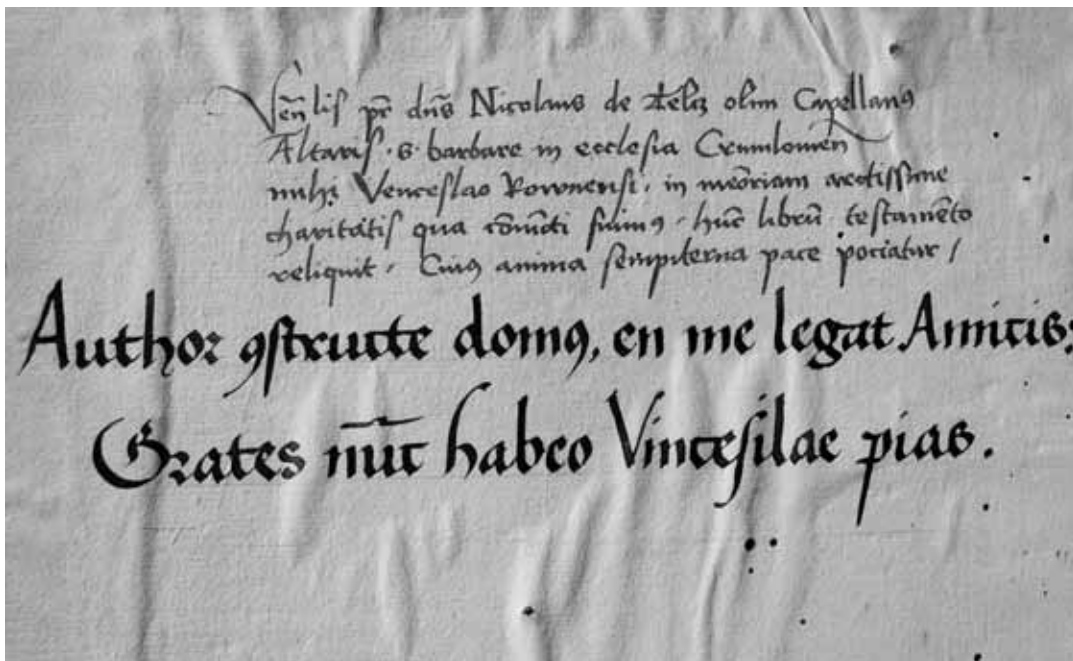 Veñlis pr̃ dñs Nicolaus de Telcz olim Capellanꝰ
Altaris · S · barbare in ecclesia Crumlouień
mihi Venceslao Rownensi · in meõriam
charitatis qua fuimꝰ · hũc librũ · testamẽto
reliquit · Cuiꝰ anima sempiterna pace pociatur /
Author ꝯstructe domꝰ, en me legat Amicis;
Grates nũc habeo Vincesilae pias.